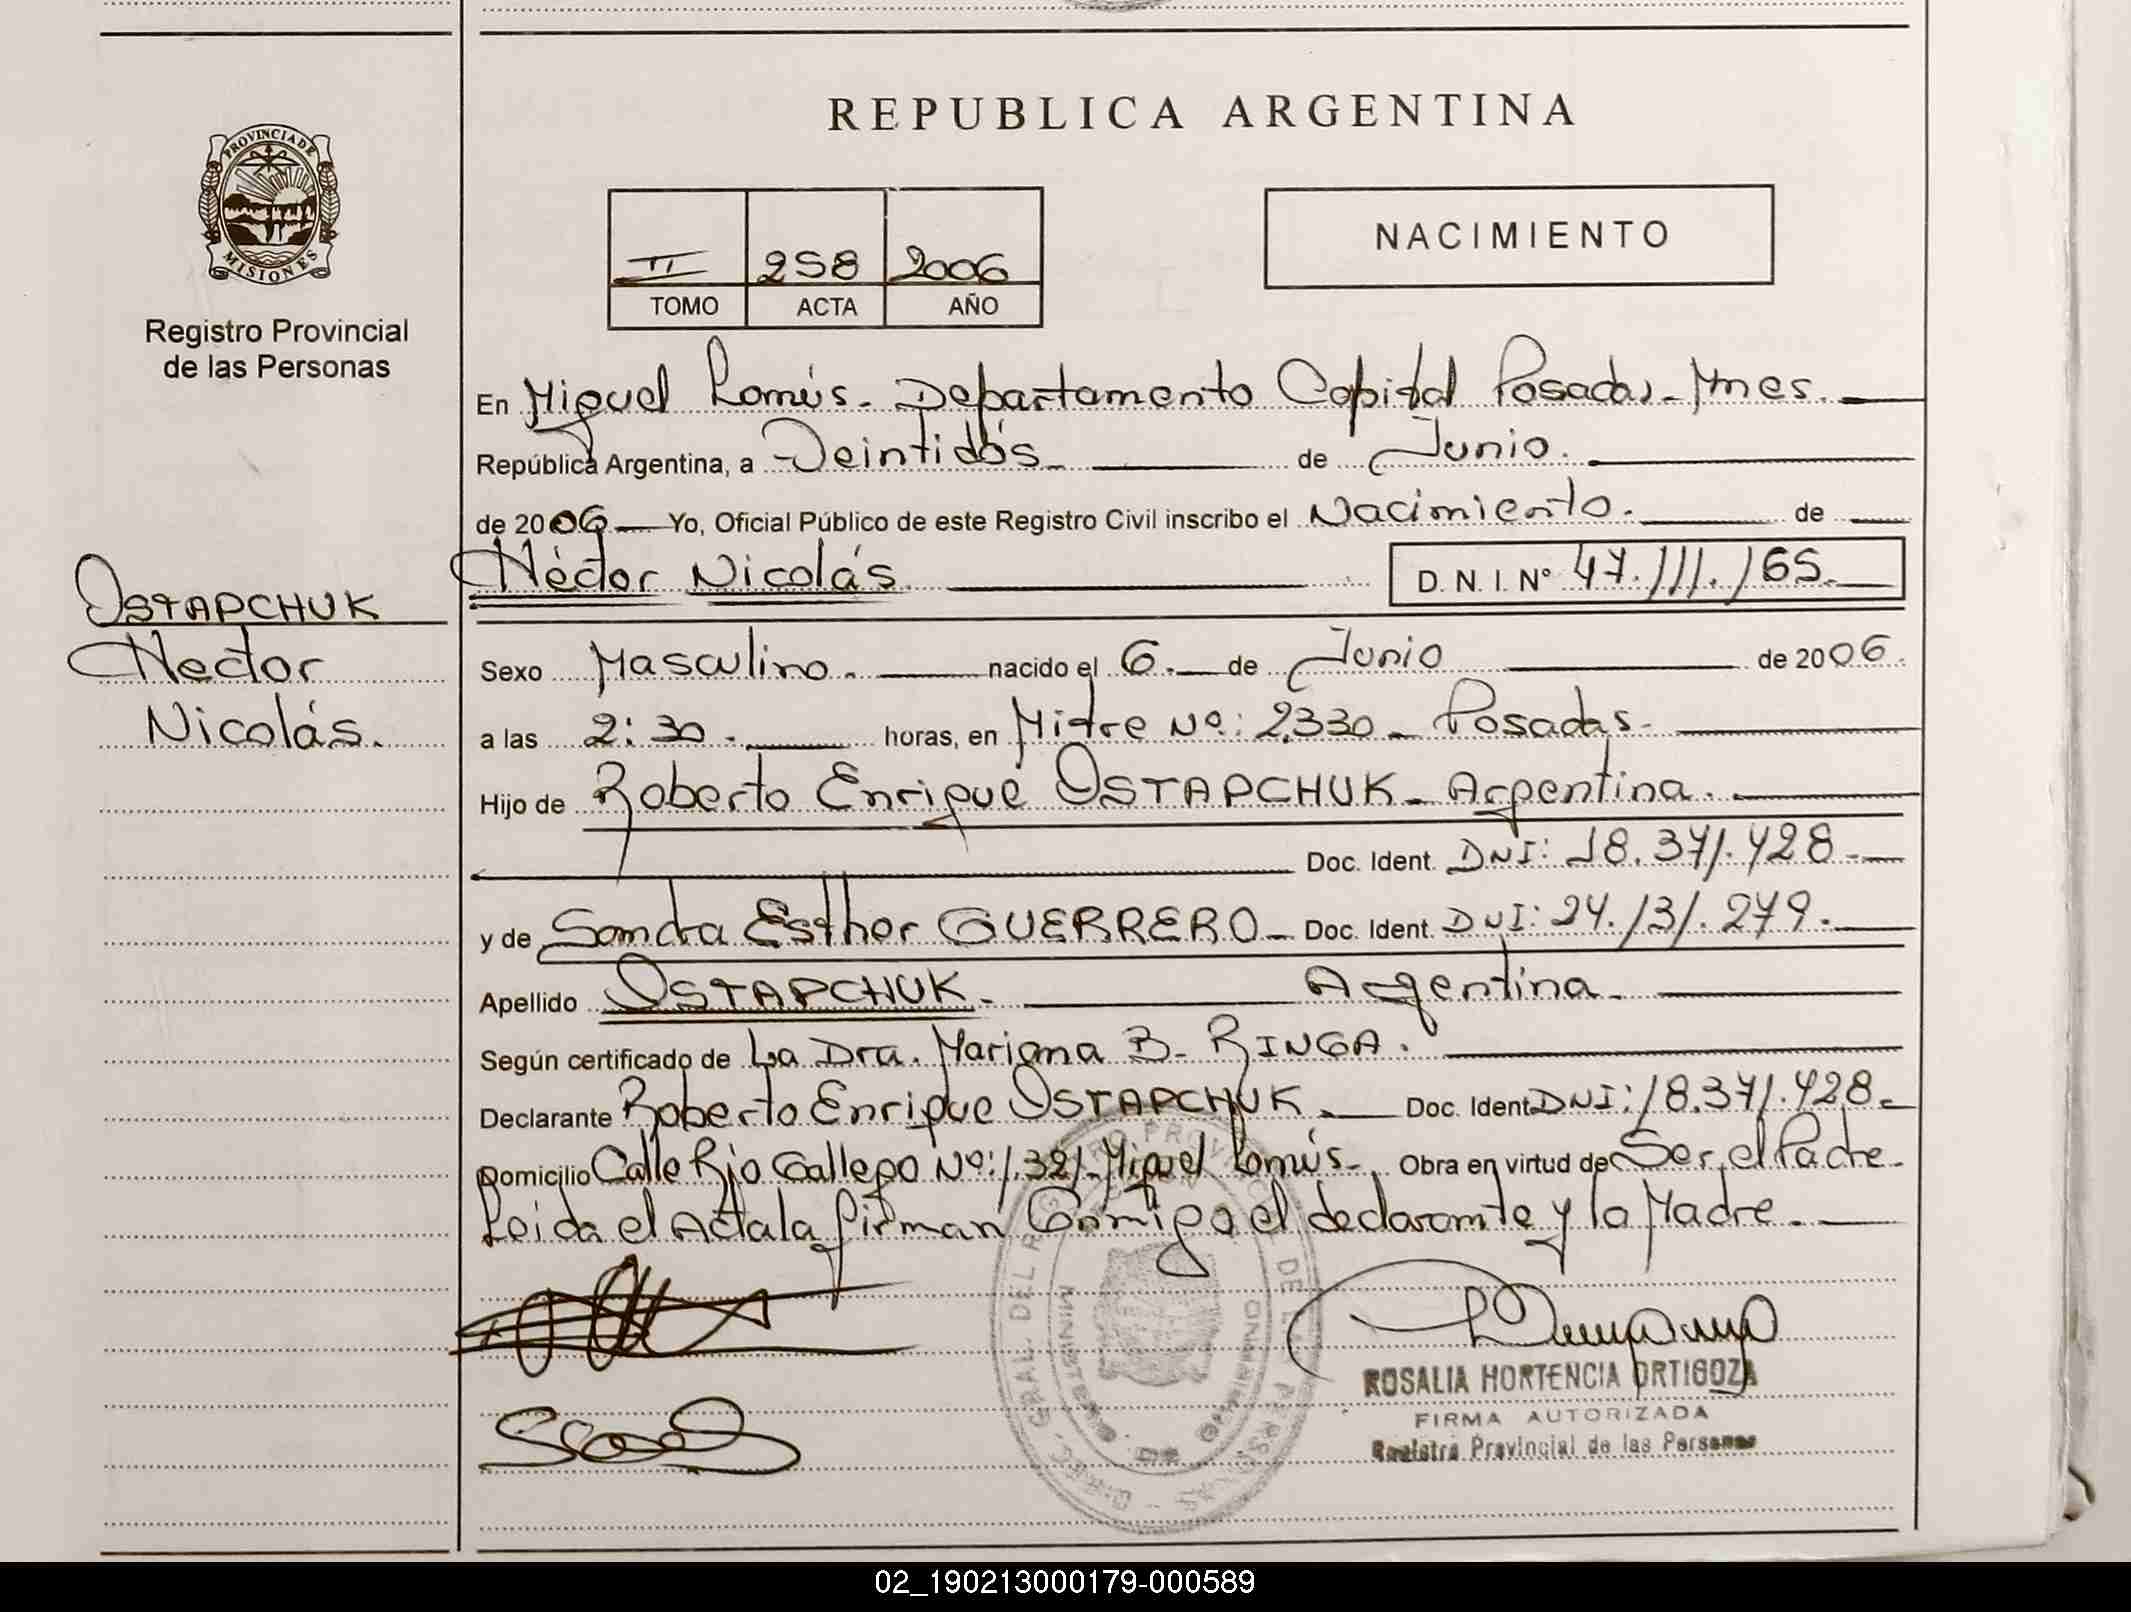 REPUBLICA ARGENTINA
PROVINCIA DE
MISIONES
Registro Provincial
de las Personas
II 258 2006
TOMO ACTA AÑO
NACIMIENTO
En Miguel Lanús. Departamento Capital Posadas - Mnes.
República Argentina, a Veintidós de Junio.
de 2006 Yo, Oficial Público de este Registro Civil inscribo el Nacimiento. de
Héctor Nicolás. D.N.I. Nº 47.111.165.
OSTAPCHUK
Hector
Nicolás.
Sexo Masculino. nacido el 6. de Junio de 2006.
a las 2:30. horas, en Mitre Nº: 2.330 - Posadas.
Hijo de Roberto Enrique OSTAPCHUK - Argentina.
Doc. Ident. DNI: 18.371.428.
y de Sandra Esther GUERRERO - Doc. Ident. DNI: 24.131.279.
Apellido OSTAPCHUK. Argentina.
Según certificado de La Dra. Mariana B. RINGA.
Declarante Roberto Enrique OSTAPCHUK. Doc. Ident DNI: 18.371.428.
Domicilio Calle Rio Gallego Nº: 1.321 - Miguel Lanús. Obra en virtud de Ser el Padre.
Leida el Acta la firman Conmigo el declarante y la Madre.
ROSALIA HORTENCIA ORTIGOZA
FIRMA AUTORIZADA
Registro Provincial de las Personas
02_190213000179-000589